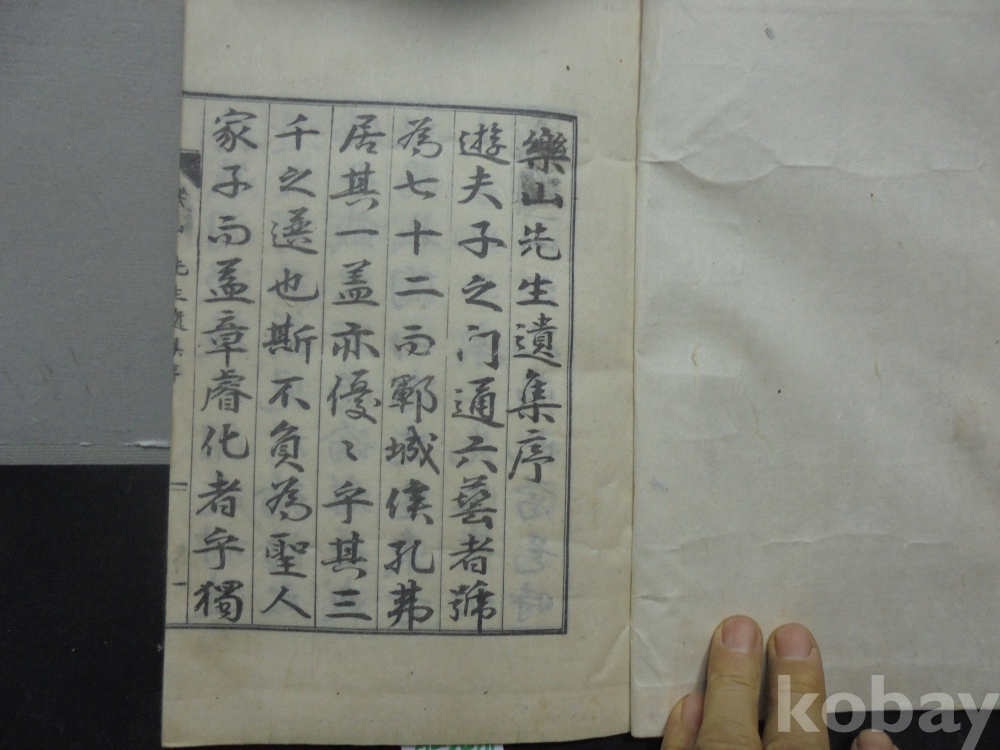 樂山先生遺集序
遊夫子之门通六藝者號
為七十二而鄆城侯孔弗
居其一盖亦優〻乎其三
千之選也斯不負為聖人
家子而益章睿化者乎獨
樂山先生遺集序
一
kobay